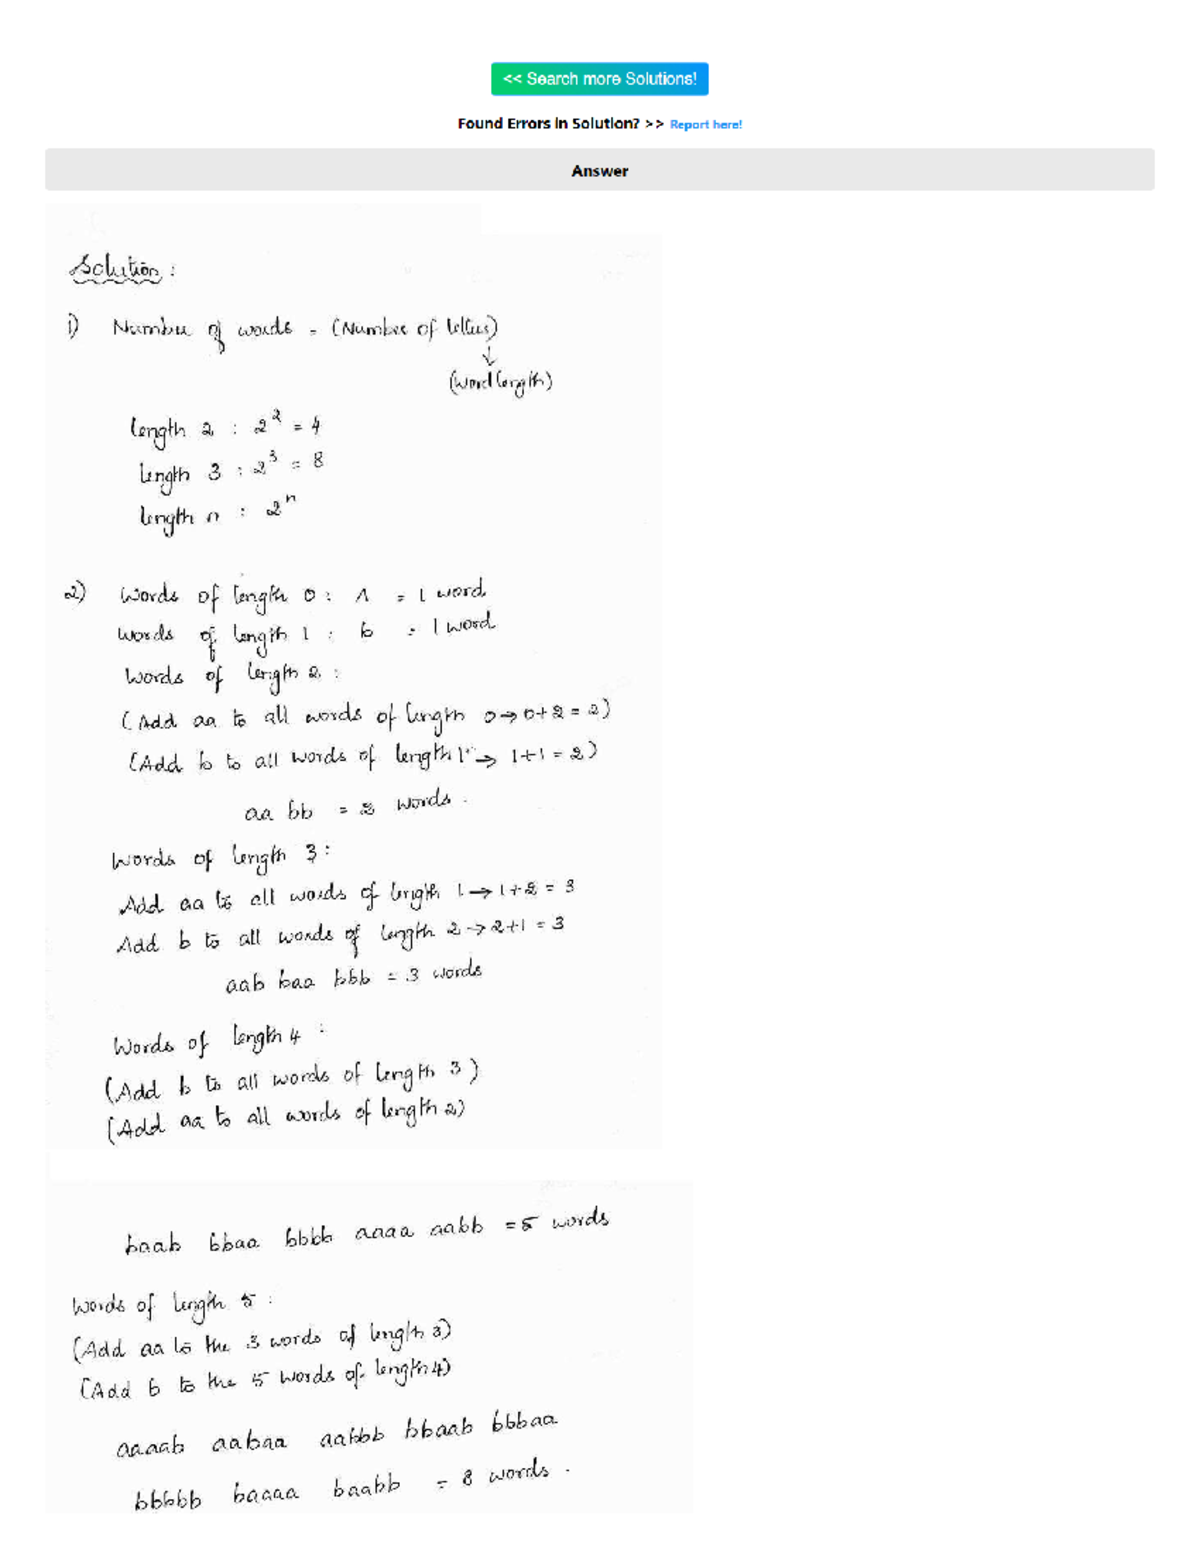 << Search more Solutions!
Found Errors in Solution? >> Report here!
Answer
Solution :
1) Number of words = (Number of letters)
↓
(word length)
length 2 : 2² = 4
length 3 : 2³ = 8
length n : 2ⁿ
2) Words of length 0 : Λ = 1 word
Words of length 1 : b = 1 word
Words of length 2 :
(Add aa to all words of length 0 → 0+2 = 2)
(Add b to all words of length 1 → 1+1 = 2)
aa bb = 2 words.
Words of length 3 :
Add aa to all words of length 1 → 1+2 = 3
Add b to all words of length 2 → 2+1 = 3
aab baa bbb = 3 words
Words of length 4 :
(Add b to all words of length 3)
(Add aa to all words of length 2)
baab bbaa bbbb aaaa aabb = 5 words
Words of length 5 :
(Add aa to the 3 words of length 3)
(Add b to the 5 words of length 4)
aaaab aabaa aabbb bbaab bbbaa
bbbbb baaaa baabb = 8 words.